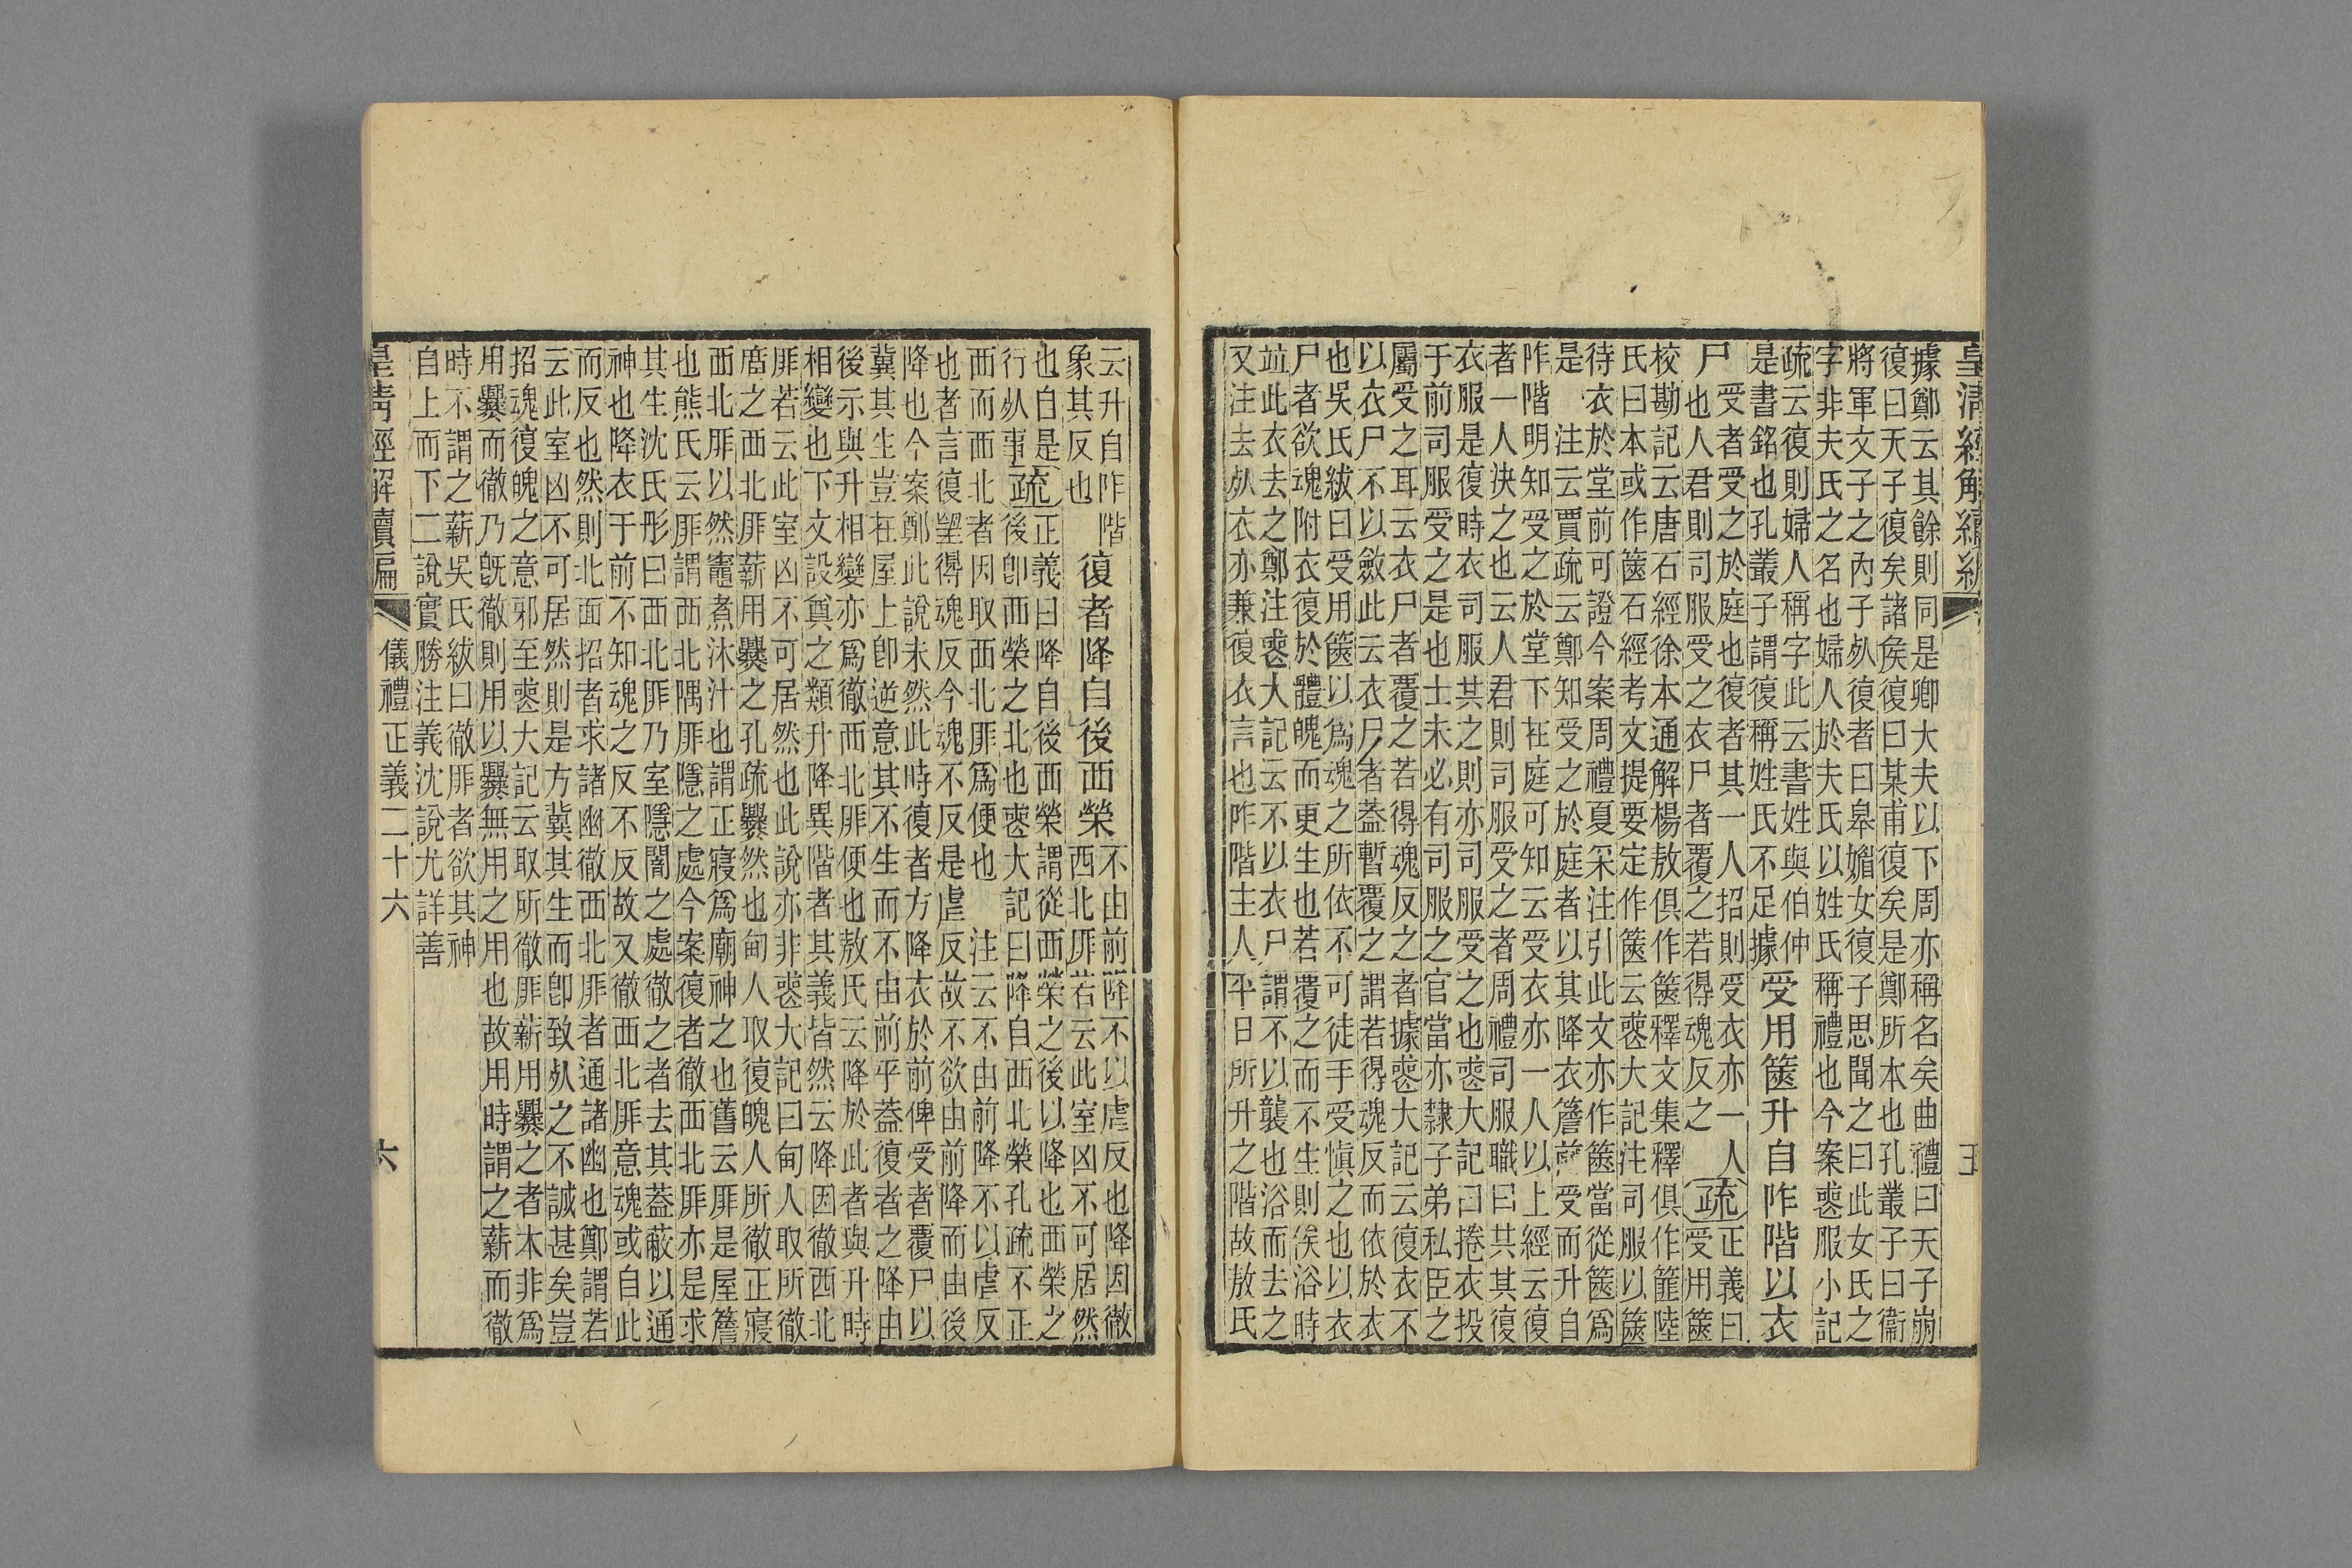 皇清經解續編
五
據鄭云其餘則同是卿大夫以下周亦稱名矣曲禮曰天子崩
復曰天子復矣諸矦復曰某甫復矣是鄭所本也孔叢子曰衞
將軍文子之內子死復者曰皐媚女復子思聞之曰此女氏之
字非夫氏之名也婦人於夫氏以姓氏稱禮也今案喪服小記
疏云復則婦人稱字此云書姓與伯仲
是書銘也孔叢子謂復稱姓氏不足據
受用篋升自阼階以衣
尸
受者受之於庭也復者其一人招則受衣亦一人
也人君則司服受之衣尸者覆之若得魂反之
疏
正義曰
受用篋
校勘記云唐石經徐本通解楊敖俱作篋釋文集釋俱作篚陸
氏曰本或作篋石經考文提要定作篋云喪大記注司服以篋
待衣於堂前可證今案周禮夏采注引此文亦作篋當從篋爲
是　注云賈疏云鄭知受之於庭者以其降衣簷前受而升自
阼階明知受之於堂下在庭可知云受衣亦一人以上經云復
者一人決之也云人君則司服受之者周禮司服職曰其復
衣服是復時衣司服其之則亦司服受之也喪大記曰捲衣投
于前司服受之是也士未必有司服之官當亦隸子弟私臣之
屬受之耳云衣尸者覆之若得魂反之者據喪大記云復衣不
以衣尸不以斂此云衣尸者蓋暫覆之謂若得魂反而依於衣
也吳氏紱曰受用篋以爲魂之所依不可徒手受愼之也以衣
尸者欲魂附衣復於體魄而更生也若覆之而不生則俟浴時
竝此衣去之鄭注喪大記云不以衣尸謂不以襲也浴而去之
又注去死衣亦兼復衣言也阼階主人平日所升之階故敖氏
云升自阼階
象其反也
復者降自後西榮
不由前降不以虛反也降因徹
西北厞若云此室凶不可居然
也自是
行死事
疏
正義曰降自後西榮謂從西榮之後以降也西榮之
後卽西榮之北也喪大記曰降自西北榮孔疏不正
西而西北者因取西北厞爲便也　注云不由前降不以虛反
也者言復望得魂反今魂不反是虛反故不欲由前降而由後
降也今案鄭此說未然此時復者方降衣於前俾受者覆尸以
冀其生豈在屋上卽逆意其不生而不由前乎蓋復者之降由
後示與升相變亦爲徹西北厞便也敖氏云降於此者與升時
相變也下文設奠之類升降異階者其義皆然云降因徹西北
厞若云此室凶不可居然也此說亦非喪大記曰甸人取所徹
廟之西北厞薪用爨之孔疏爨然也甸人取復魄人所徹正寢
西北厞以然竈煮沐汁也謂正寢爲廟神之也舊云厞是屋簷
也熊氏云厞謂西北隅厞隱之處今案復者徹西北厞亦是求
其生沈氏彤曰西北厞乃室隱闇之處徹之者去其蓋蔽以通
神也降衣于前不知魂之反不反故又徹西北厞意魂或自此
而反也然則北面招者求諸幽徹西北厞者通諸幽也鄭謂若
云此室凶不可居然則是方冀其生而卽致死之不誠甚矣豈
招魂復魄之意邪至喪大記云取所徹厞薪用爨之者本非爲
用爨而徹乃旣徹則用以爨無用之用也故用時謂之薪而徹
時不謂之薪吳氏紱曰徹厞者欲其神
自上而下二說實勝注義沈說尤詳善
皇清經解續編
儀禮正義二十六
六